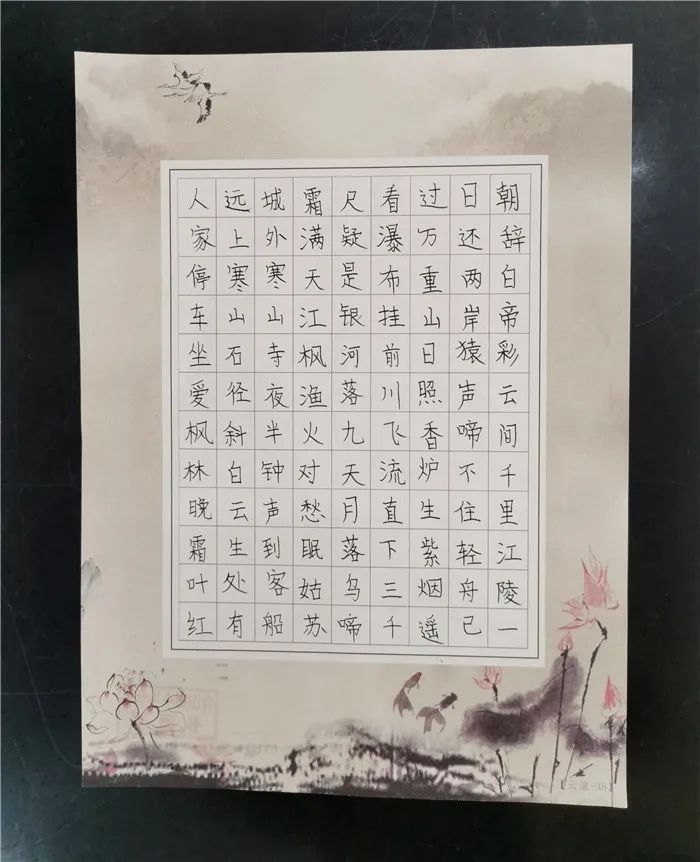 朝辞白帝彩云间千里江陵一
日还两岸猿声啼不住轻舟已
过万重山日照香炉生紫烟遥
看瀑布挂前川飞流直下三千
尺疑是银河落九天月落乌啼
霜满天江枫渔火对愁眠姑苏
城外寒山寺夜半钟声到客船
远上寒山石径斜白云生处有
人家停车坐爱枫林晚霜叶红